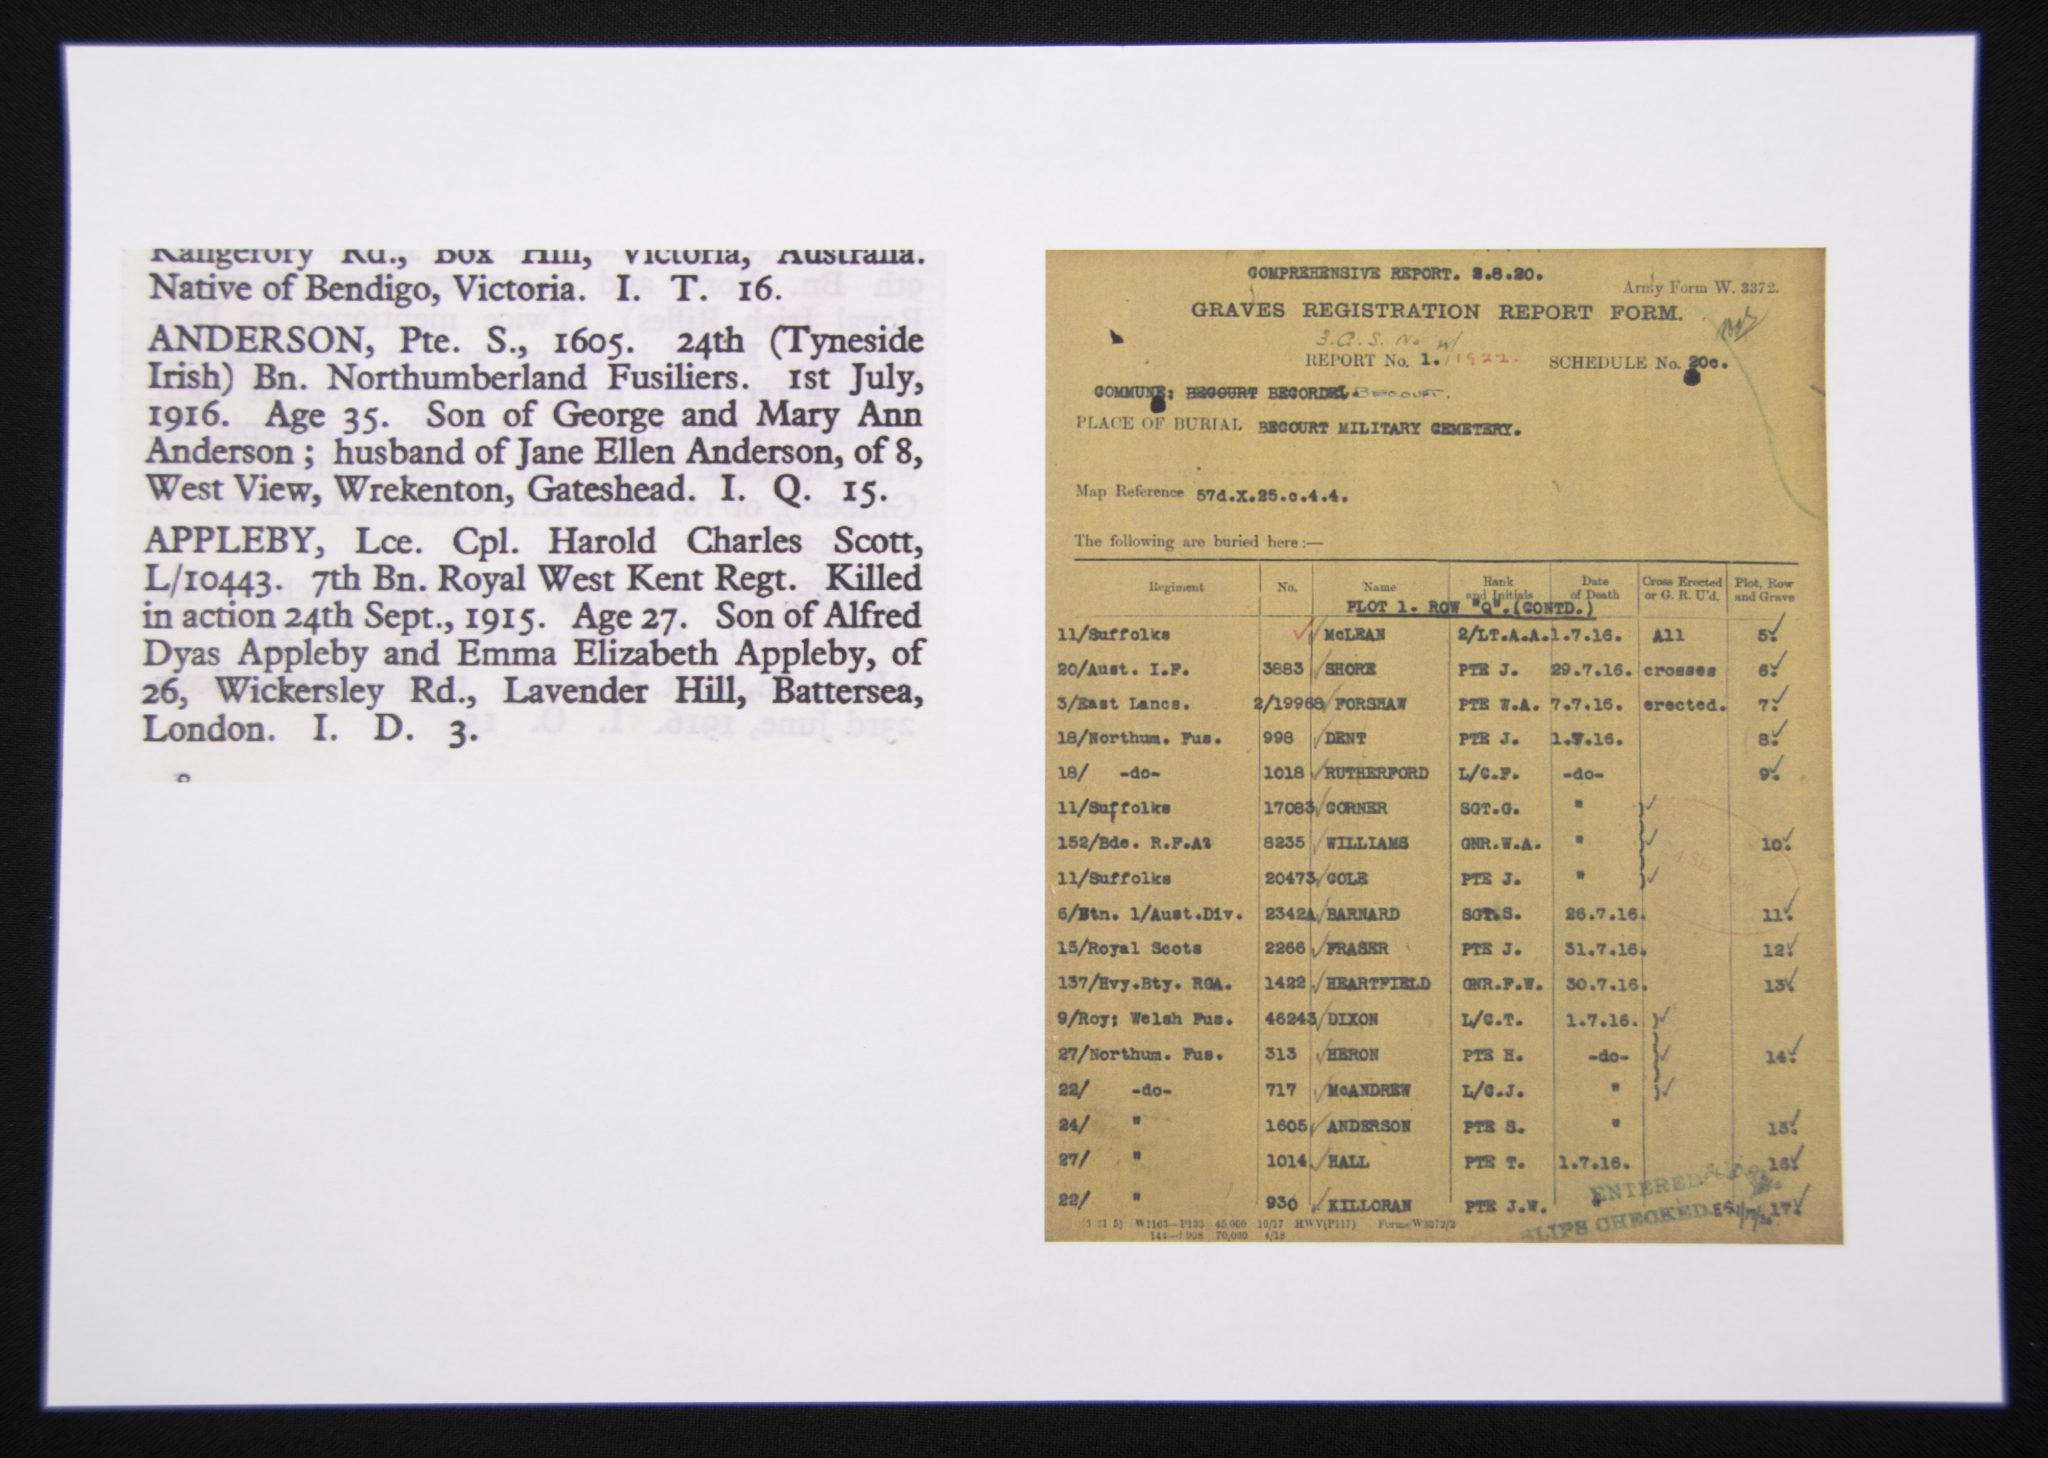 Rd., Box Hill, Victoria, Australia.
Native of Bendigo, Victoria. I. T. 16.
ANDERSON, Pte. S., 1605. 24th (Tyneside
Irish) Bn. Northumberland Fusiliers. 1st July,
1916. Age 35. Son of George and Mary Ann
Anderson ; husband of Jane Ellen Anderson, of 8,
West View, Wrekenton, Gateshead. I. Q. 15.
APPLEBY, Lce. Cpl. Harold Charles Scott,
L/10443. 7th Bn. Royal West Kent Regt. Killed
in action 24th Sept., 1915. Age 27. Son of Alfred
Dyas Appleby and Emma Elizabeth Appleby, of
26, Wickersley Rd., Lavender Hill, Battersea,
London. I. D. 3.
COMPREHENSIVE REPORT. 2.8.20.
Army Form W. 3372.
GRAVES REGISTRATION REPORT FORM.
REPORT No. 1. 1922. SCHEDULE No. 20c.
COMMUNE: BECOURT BECORDEL BECOURT.
PLACE OF BURIAL BECOURT MILITARY CEMETERY.
Map Reference 57d.X.25.c.4.4.
The following are buried here :—
Regiment No. Name Rank and Initials Date of Death Cross Erected or G. R. U'd. Plot, Row and Grave
PLOT 1. ROW "Q".(CONTD.)
11/Suffolks McLEAN 2/LT.A.A. 1.7.16. All 5.
20/Aust. I.F. 3883 SHORE PTE J. 29.7.16. crosses 6.
3/East Lancs. 2/19968 FORSHAW PTE W.A. 7.7.16. erected. 7.
18/Northum. Fus. 998 DENT PTE J. 1.7.16. 8.
18/ -do- 1018 RUTHERFORD L/C.F. -do- 9.
11/Suffolks 17083 CORNER SGT.G. "
152/Bde. R.F.A. 8235 WILLIAMS GNR.W.A. " 10.
11/Suffolks 20473 COLE PTE J. "
6/Btn. 1/Aust.Div. 2342A BARNARD SGT.S. 26.7.16. 11.
15/Royal Scots 2266 FRASER PTE J. 31.7.16. 12.
137/Hvy.Bty. RGA. 1422 HEARTFIELD GNR.F.W. 30.7.16. 13.
9/Roy; Welsh Fus. 46243 DIXON L/C.T. 1.7.16.
27/Northum. Fus. 313 HERON PTE H. -do- 14.
22/ -do- 717 McANDREW L/C.J. "
24/ " 1605 ANDERSON PTE S. " 15.
27/ " 1014 HALL PTE T. 1.7.16. 16.
22/ " 930 KILLORAN PTE J.W. " 17.
ENTERED
SLIPS CHECKED
W1163—P133 45,000 10/17 HWV(P117) Forms/W3372/2
70,000 4/18